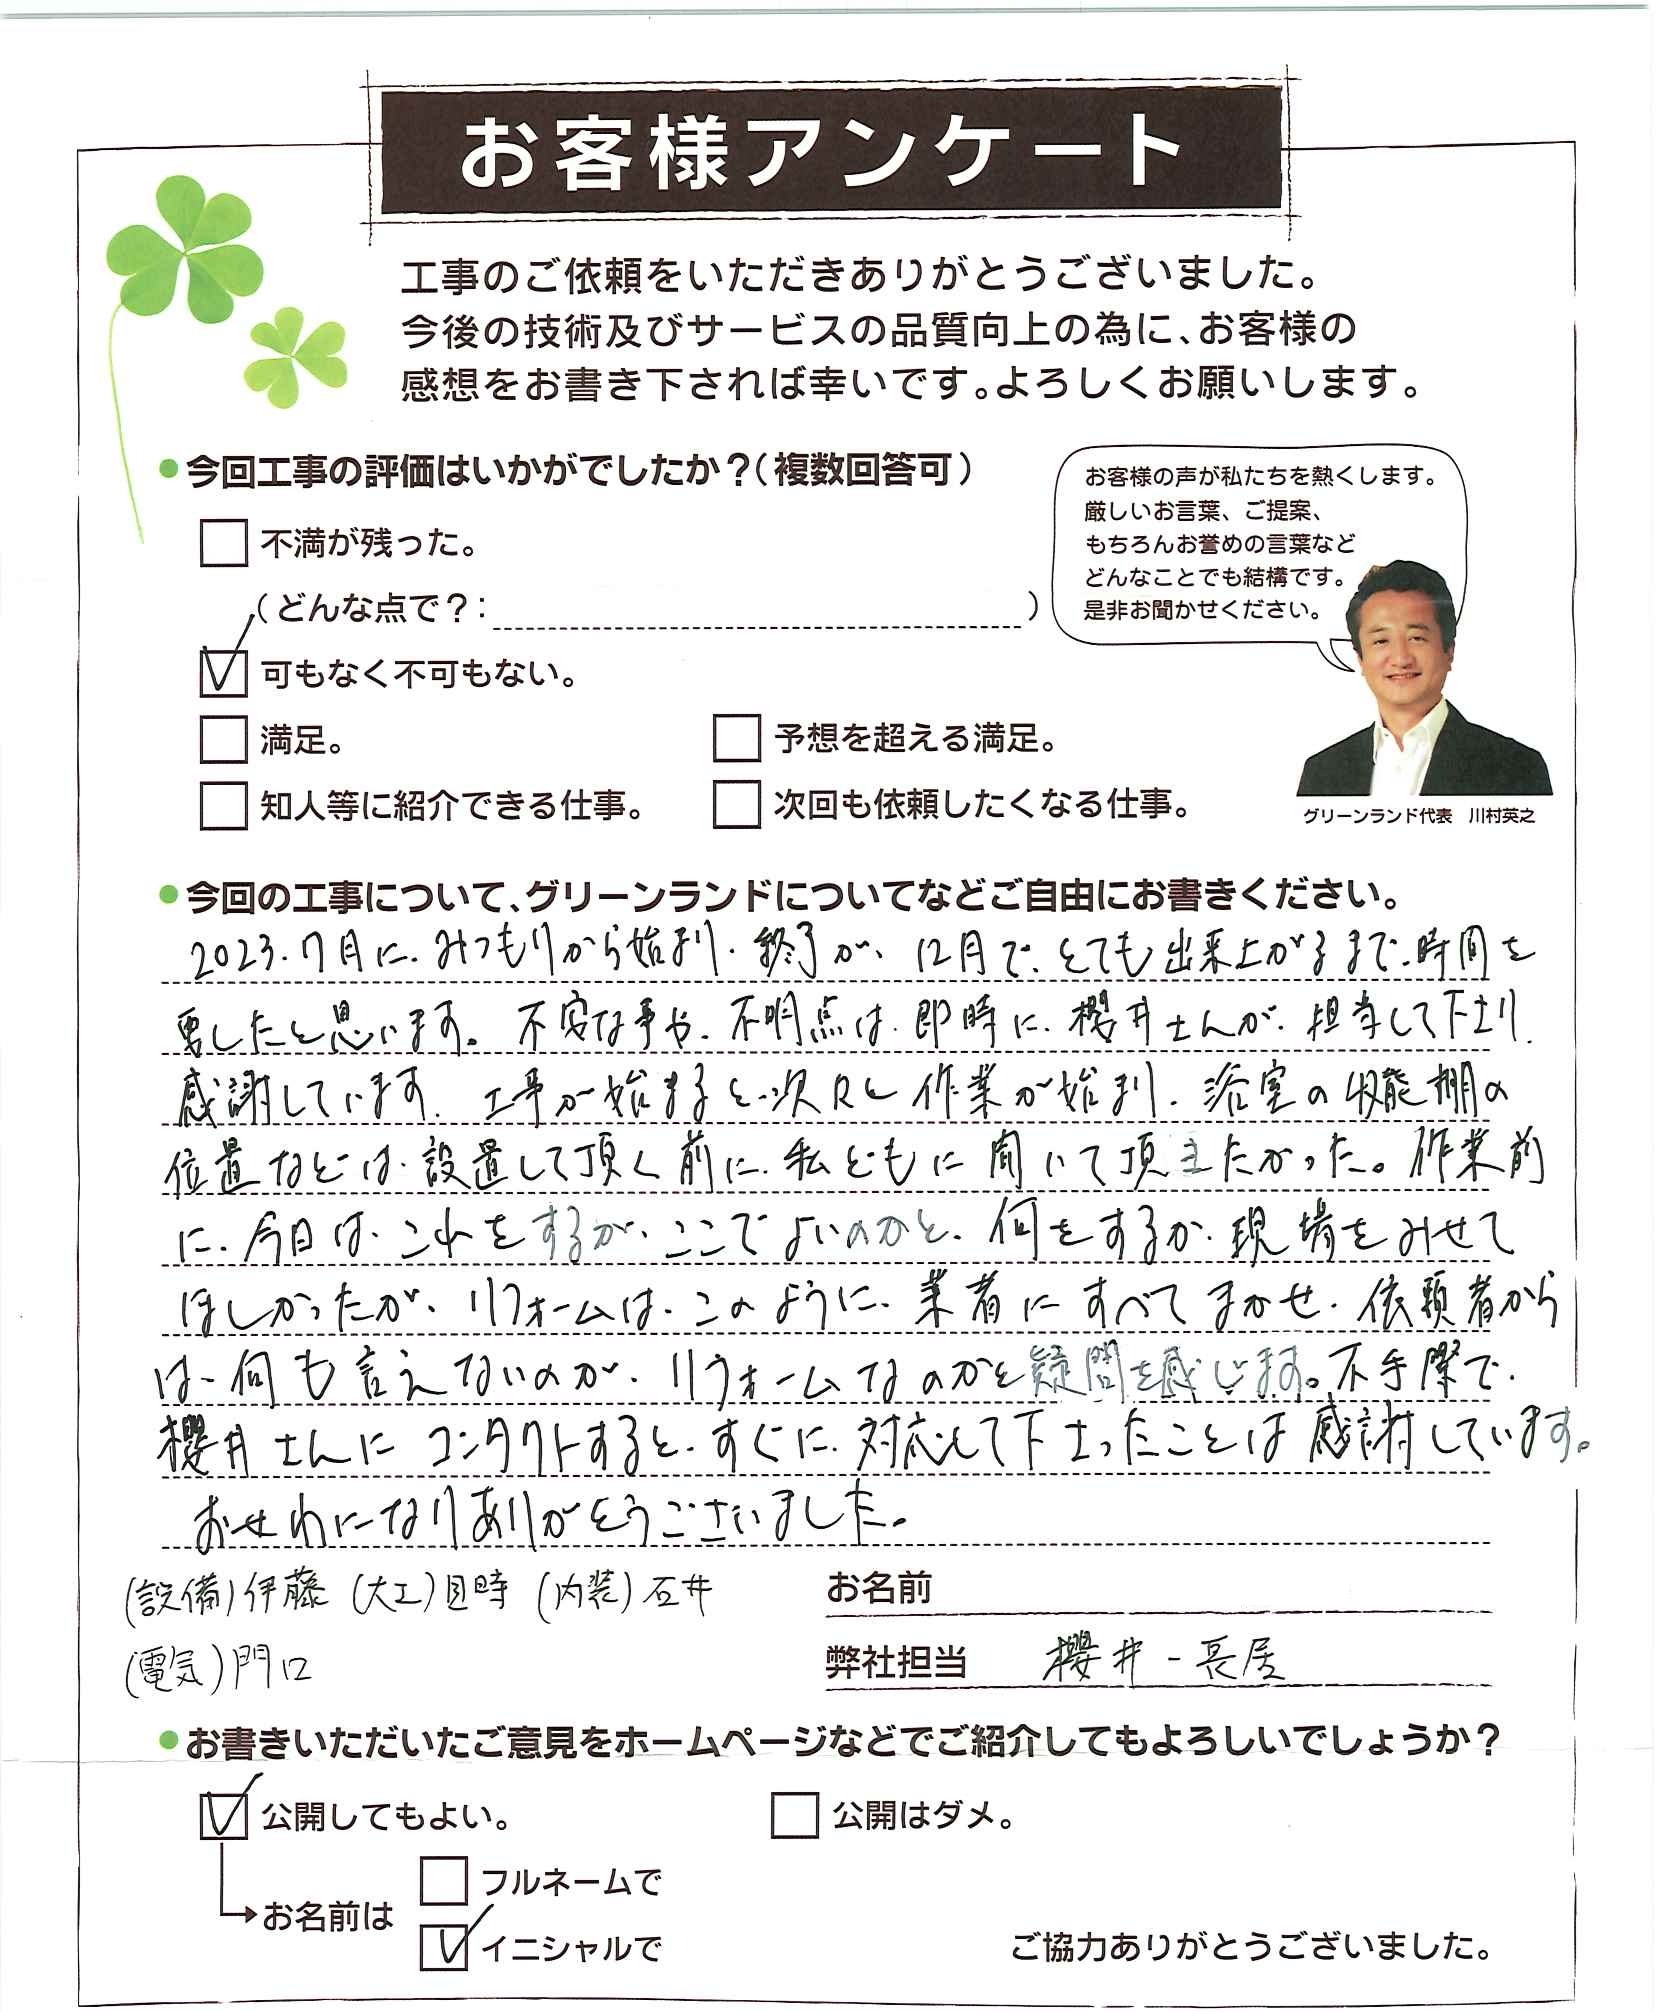 お客様アンケート
工事のご依頼をいただきありがとうございました。
今後の技術及びサービスの品質向上の為に、お客様の
感想をお書き下されば幸いです。よろしくお願いします。
●今回工事の評価はいかがでしたか？（複数回答可）
不満が残った。
（どんな点で？： ）
可もなく不可もない。
満足。 予想を超える満足。
知人等に紹介できる仕事。 次回も依頼したくなる仕事。
お客様の声が私たちを熱くします。
厳しいお言葉、ご提案、
もちろんお誉めの言葉など
どんなことでも結構です。
是非お聞かせください。
グリーンランド代表 川村英之
●今回の工事について、グリーンランドについてなどご自由にお書きください。
2023.7月に、みつもりから始まり、終了が、12月で、とても出来上がるまで、時間を
要したと思います。不安な事や、不明点は、即時に、櫻井さんが、担当して下さり、
感謝しています。工事が始まると、次々と作業が始まり、浴室の収能棚の
位置などは、設置して頂く前に、私どもに聞いて頂きたかった。作業前
に、今日は、これをするが、ここでよいのかと、何をするか、現場をみせて
ほしかったが、リフォームは、このように、業者にすべてまかせ、依頼者から
は、何も言えないのが、リフォームなのかと疑問を感じます。不手際で、
櫻井さんにコンタクトすると、すぐに、対応して下さったことは感謝しています。
おせわになりありがとうございました。
(設備)伊藤 (大工)目時 (内装)石井
(電気)門口
お名前
弊社担当 櫻井-長居
●お書きいただいたご意見をホームページなどでご紹介してもよろしいでしょうか？
公開してもよい。 公開はダメ。
お名前は
フルネームで
イニシャルで
ご協力ありがとうございました。